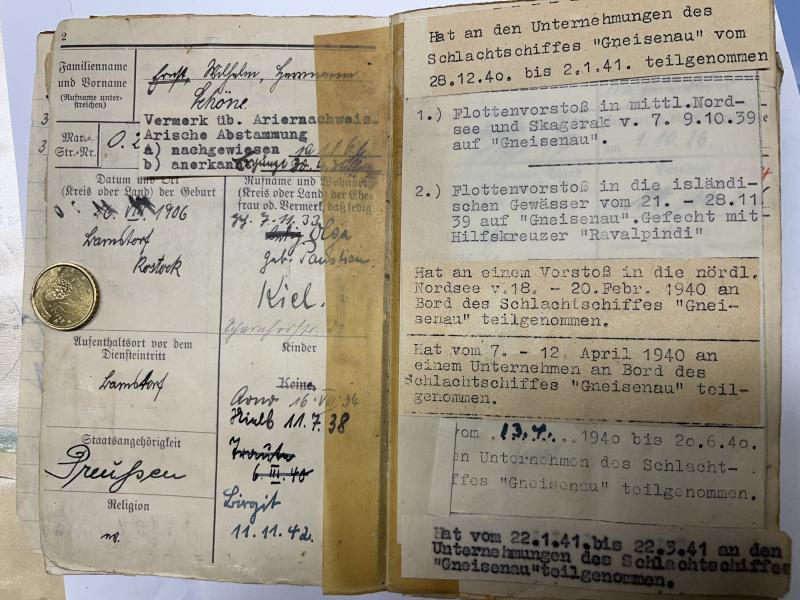 2
Familienname
und Vorname
(Rufname unter-
streichen)
Ernst, Wilhelm, Hermann
Schöne
Mar.-
Str.-Nr.
O. 2
Vermerk üb. Ariernachweis.
Arische Abstammung
a) nachgewiesen
b) anerkannt
Datum und Ort
(Kreis oder Land) der Geburt
1906
Barnstorf
Rostock
Rufname und Wohnort
(Kreis oder Land) der Ehe-
frau od. Vermerk, daß ledig
7.11.33
Olga
geb. Paustian
Kiel.
Aufenthaltsort vor dem
Diensteintritt
Barnstorf
Kinder
Keine,
Arno 16.VIII.34
Niels 11.7.38
Traute
6.III.40
Birgit
11.11.42.
Staatsangehörigkeit
Preußen
Religion
Hat an den Unternehmungen des
Schlachtschiffes "Gneisenau" vom
28.12.40. bis 2.1.41. teilgenommen
1.) Flottenvorstoß in mittl.Nord-
see und Skagerak v. 7. 9.10.39
auf "Gneisenau".
2.) Flottenvorstoß in die isländi-
schen Gewässer vom 21. - 28.11
39 auf "Gneisenau".Gefecht mit
Hilfskreuzer "Ravalpindi"
Hat an einem Vorstoß in die nördl.
Nordsee v.18. - 20.Febr. 1940 an
Bord des Schlachtschiffes "Gnei-
senau" teilgenommen.
Hat vom 7. - 12. April 1940 an
einem Unternehmen an Bord des
Schlachtschiffes "Gneisenau" teil-
genommen.
vom 1940 bis 20.6.40.
en Unternehmen des Schlacht-
ffes "Gneisenau" teilgenommen.
Hat vom 22.1.41.bis 22.3.41 an den
Unternehmungen des Schlachtschiffes
"Gneisenau"teilgenommen.